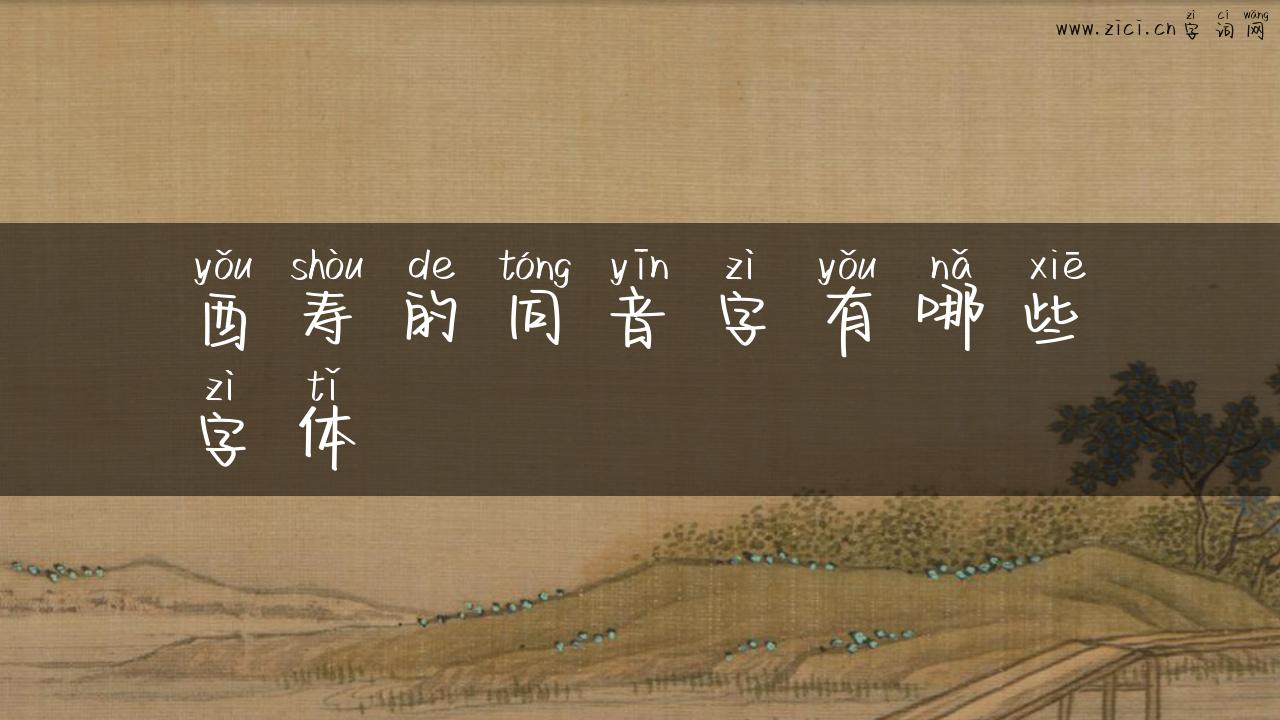 zì cí wǎng
www.zici.cn字词网
yǒu shòu de tóng yīn zì yǒu nǎ xiē
酉寿的同音字有哪些
zì tǐ
字体